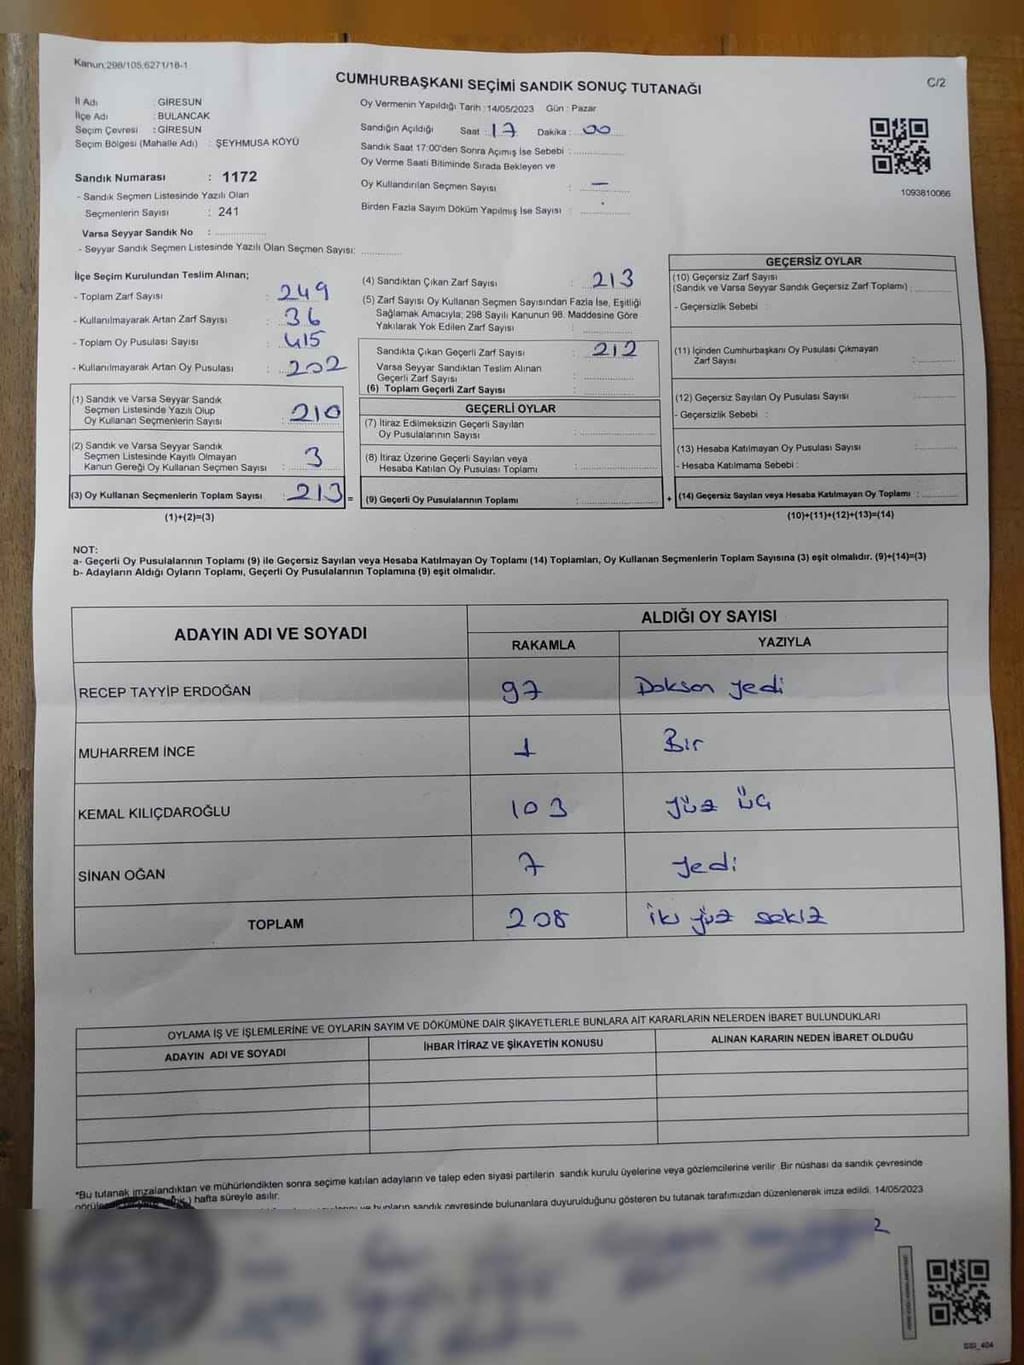 Kanun:298/105,6271/18-1
CUMHURBAŞKANI SEÇİMİ SANDIK SONUÇ TUTANAĞI
C/2
İl Adı : GİRESUN
İlçe Adı : BULANCAK
Seçim Çevresi : GİRESUN
Seçim Bölgesi (Mahalle Adı) : ŞEYHMUSA KÖYÜ
Sandık Numarası : 1172
- Sandık Seçmen Listesinde Yazılı Olan
Seçmenlerin Sayısı : 241
Varsa Seyyar Sandık No :
- Seyyar Sandık Seçmen Listesinde Yazılı Olan Seçmen Sayısı:
Oy Vermenin Yapıldığı Tarih : 14/05/2023 Gün : Pazar
Sandığın Açıldığı Saat : 17 Dakika : 00
Sandık Saat 17:00'den Sonra Açımış İse Sebebi :
Oy Verme Saati Bitiminde Sırada Bekleyen ve
Oy Kullandırılan Seçmen Sayısı : —
Birden Fazla Sayım Döküm Yapılmış İse Sayısı :
1093810066
İlçe Seçim Kurulundan Teslim Alınan;
- Toplam Zarf Sayısı : 249
- Kullanılmayarak Artan Zarf Sayısı : 36
- Toplam Oy Pusulası Sayısı : 415
- Kullanılmayarak Artan Oy Pusulası : 202
(1) Sandık ve Varsa Seyyar Sandık
Seçmen Listesinde Yazılı Olup
Oy Kullanan Seçmenlerin Sayısı : 210
(2) Sandık ve Varsa Seyyar Sandık
Seçmen Listesinde Kayıtlı Olmayan
Kanun Gereği Oy Kullanan Seçmen Sayısı : 3
(3) Oy Kullanan Seçmenlerin Toplam Sayısı : 213 =
(1)+(2)=(3)
(4) Sandıktan Çıkan Zarf Sayısı : 213
(5) Zarf Sayısı Oy Kullanan Seçmen Sayısından Fazla İse, Eşitliği
Sağlamak Amacıyla; 298 Sayılı Kanunun 98. Maddesine Göre
Yakılarak Yok Edilen Zarf Sayısı :
Sandıkta Çıkan Geçerli Zarf Sayısı : 212
Varsa Seyyar Sandıktan Teslim Alınan
Geçerli Zarf Sayısı :
(6) Toplam Geçerli Zarf Sayısı :
GEÇERLİ OYLAR
(7) İtiraz Edilmeksizin Geçerli Sayılan
Oy Pusulalarının Sayısı :
(8) İtiraz Üzerine Geçerli Sayılan veya
Hesaba Katılan Oy Pusulası Toplamı :
(9) Geçerli Oy Pusulalarının Toplamı : +
GEÇERSİZ OYLAR
(10) Geçersiz Zarf Sayısı
(Sandık ve Varsa Seyyar Sandık Geçersiz Zarf Toplamı) :
- Geçersizlik Sebebi :
(11) İçinden Cumhurbaşkanı Oy Pusulası Çıkmayan
Zarf Sayısı :
(12) Geçersiz Sayılan Oy Pusulası Sayısı :
- Geçersizlik Sebebi :
(13) Hesaba Katılmayan Oy Pusulası Sayısı :
- Hesaba Katılmama Sebebi :
(14) Geçersiz Sayılan veya Hesaba Katılmayan Oy Toplamı :
(10)+(11)+(12)+(13)=(14)
NOT:
a- Geçerli Oy Pusulalarının Toplamı (9) ile Geçersiz Sayılan veya Hesaba Katılmayan Oy Toplamı (14) Toplamları, Oy Kullanan Seçmenlerin Toplam Sayısına (3) eşit olmalıdır. (9)+(14)=(3)
b- Adayların Aldığı Oyların Toplamı, Geçerli Oy Pusulalarının Toplamına (9) eşit olmalıdır.
ADAYIN ADI VE SOYADI
ALDIĞI OY SAYISI
RAKAMLA YAZIYLA
RECEP TAYYİP ERDOĞAN 97 Doksan yedi
MUHARREM İNCE 1 Bir
KEMAL KILIÇDAROĞLU 103 yüz üç
SİNAN OĞAN 7 yedi
TOPLAM 208 iki yüz sekiz
OYLAMA İŞ VE İŞLEMLERİNE VE OYLARIN SAYIM VE DÖKÜMÜNE DAİR ŞİKAYETLERLE BUNLARA AİT KARARLARIN NELERDEN İBARET BULUNDUKLARI
ADAYIN ADI VE SOYADI İHBAR İTİRAZ VE ŞİKAYETİN KONUSU ALINAN KARARIN NEDEN İBARET OLDUĞU
*Bu tutanak imzalandıktan ve mühürlendikten sonra seçime katılan adayların ve talep eden siyasi partilerin sandık kurulu üyelerine veya gözlemcilerine verilir. Bir nüshası da sandık çevresinde
hafta süreyle asılır.
ve bunların sandık çevresinde bulunanlara duyurulduğunu gösteren bu tutanak tarafımızdan düzenlenerek imza edildi. 14/05/2023